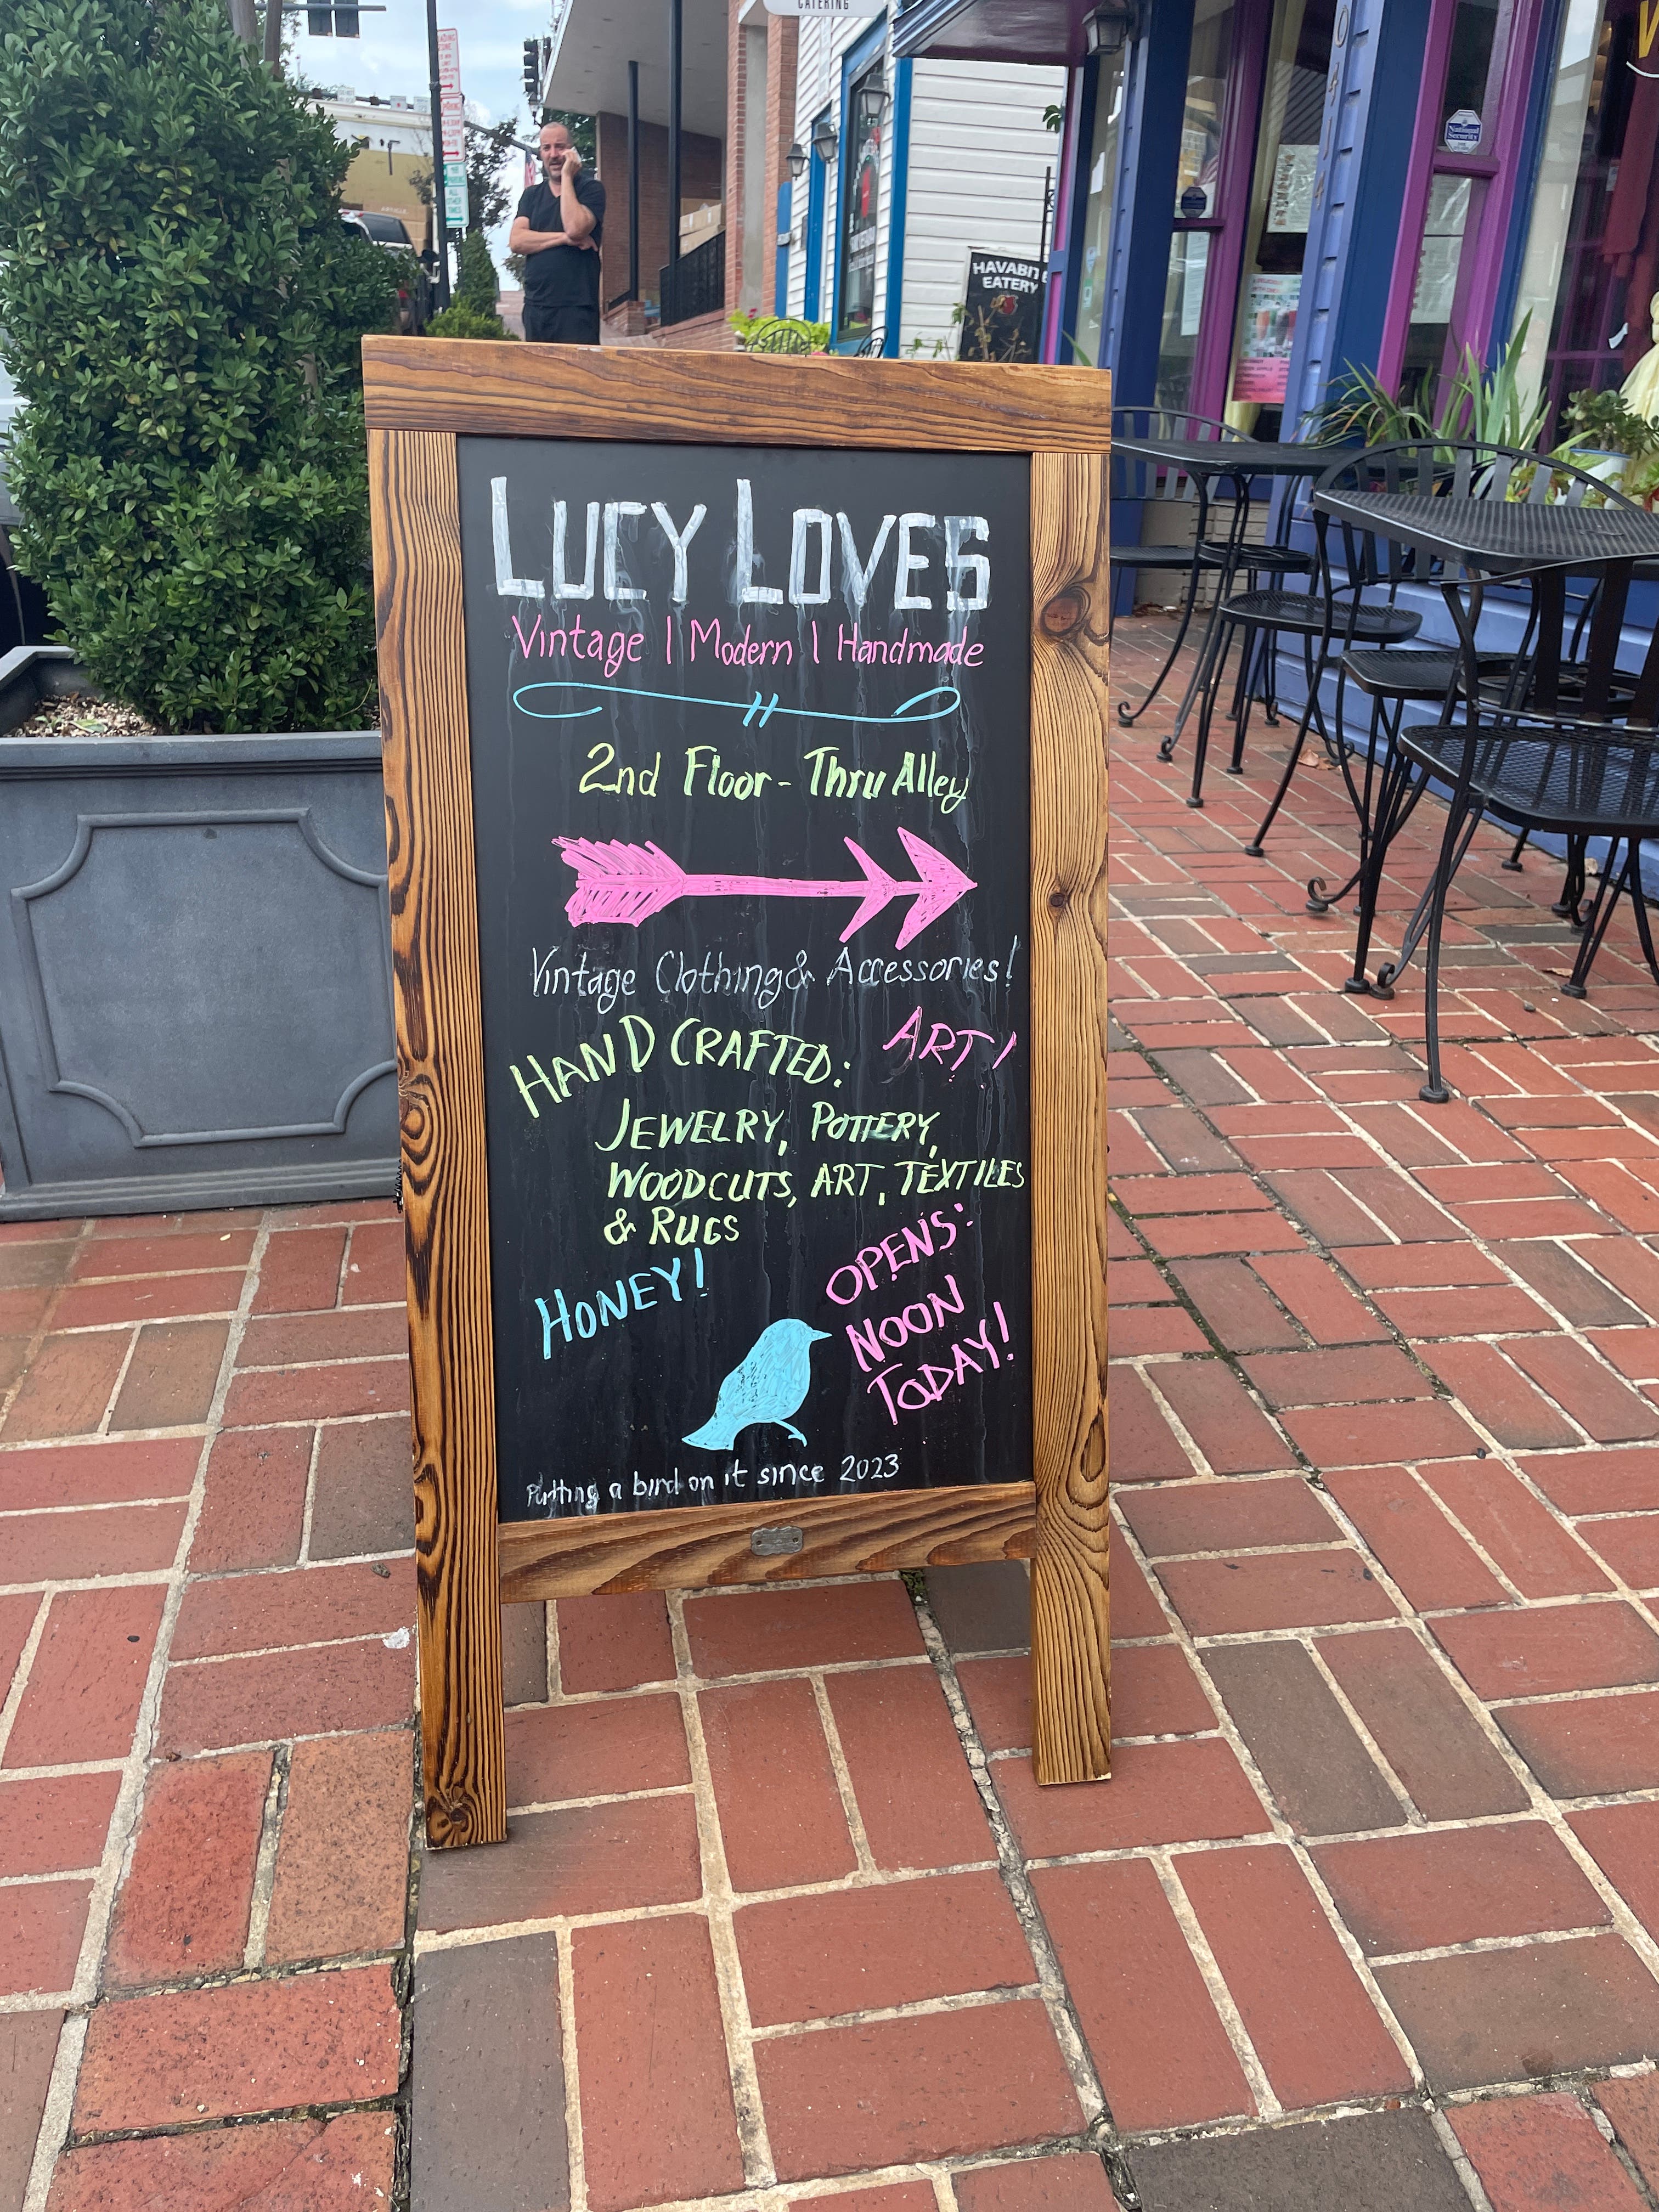 CATERING
HAVABITE
EATERY
National
Security
LUCY LOVES
Vintage | Modern | Handmade
2nd Floor - Thru Alley
Vintage Clothing & Accessories!
HAND CRAFTED:
ART!
JEWELRY, POTTERY,
WOODCUTS, ART, TEXTILES
& RUGS
HONEY!
OPENS:
NOON
TODAY!
Putting a bird on it since 2023